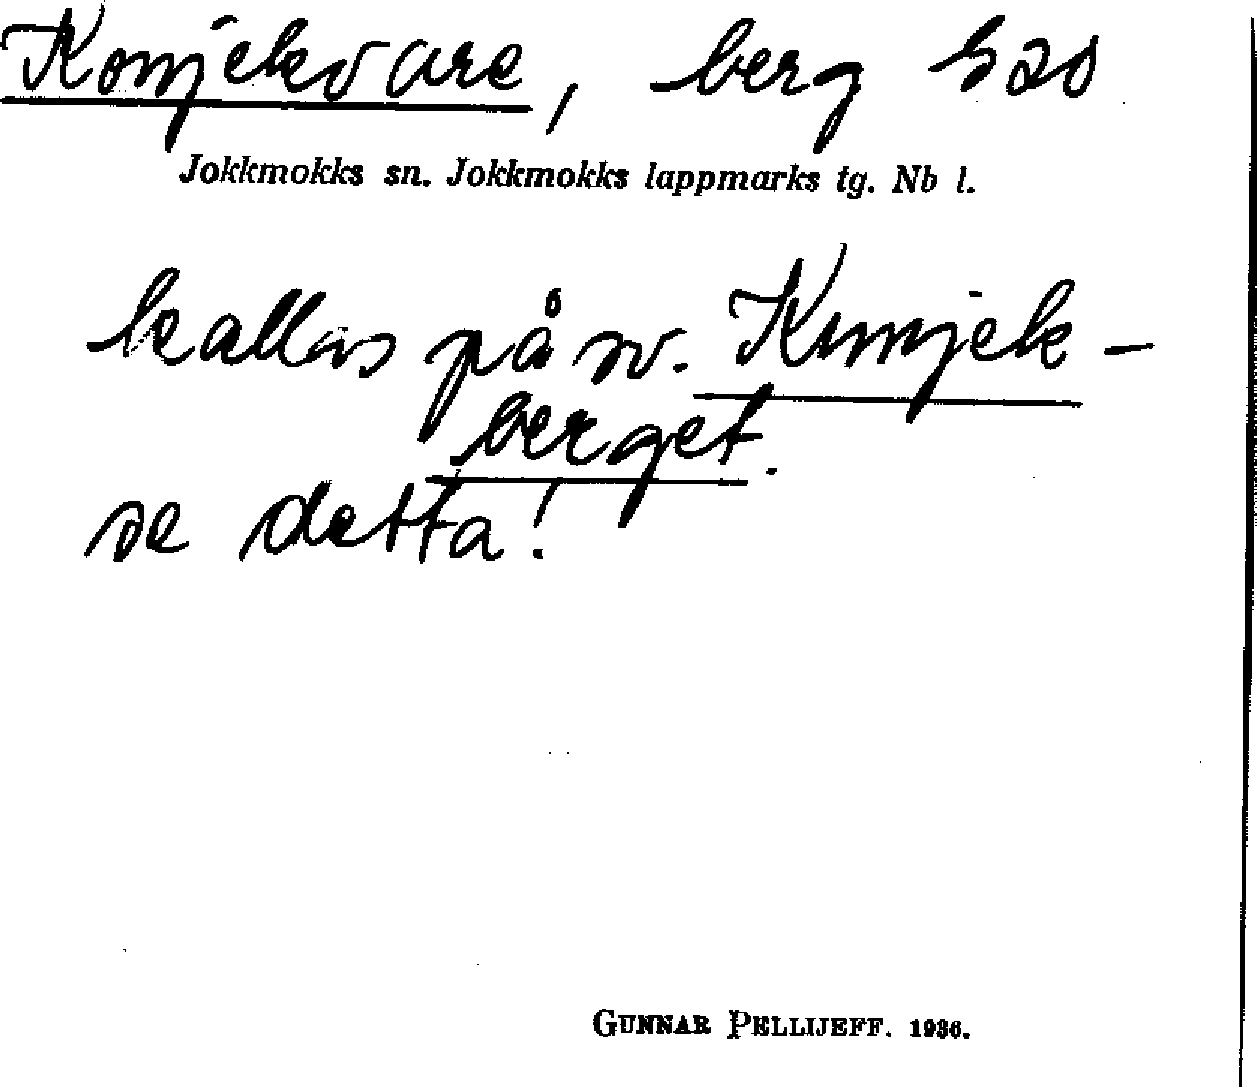 Konjekvare, berg
Jokkmokks sn. Jokkmokks lappmarks tg. Nb l.
kallas på sv. Kunjek-
berget.
se detta!
GUNNAR PELLIJEFF. 1936.